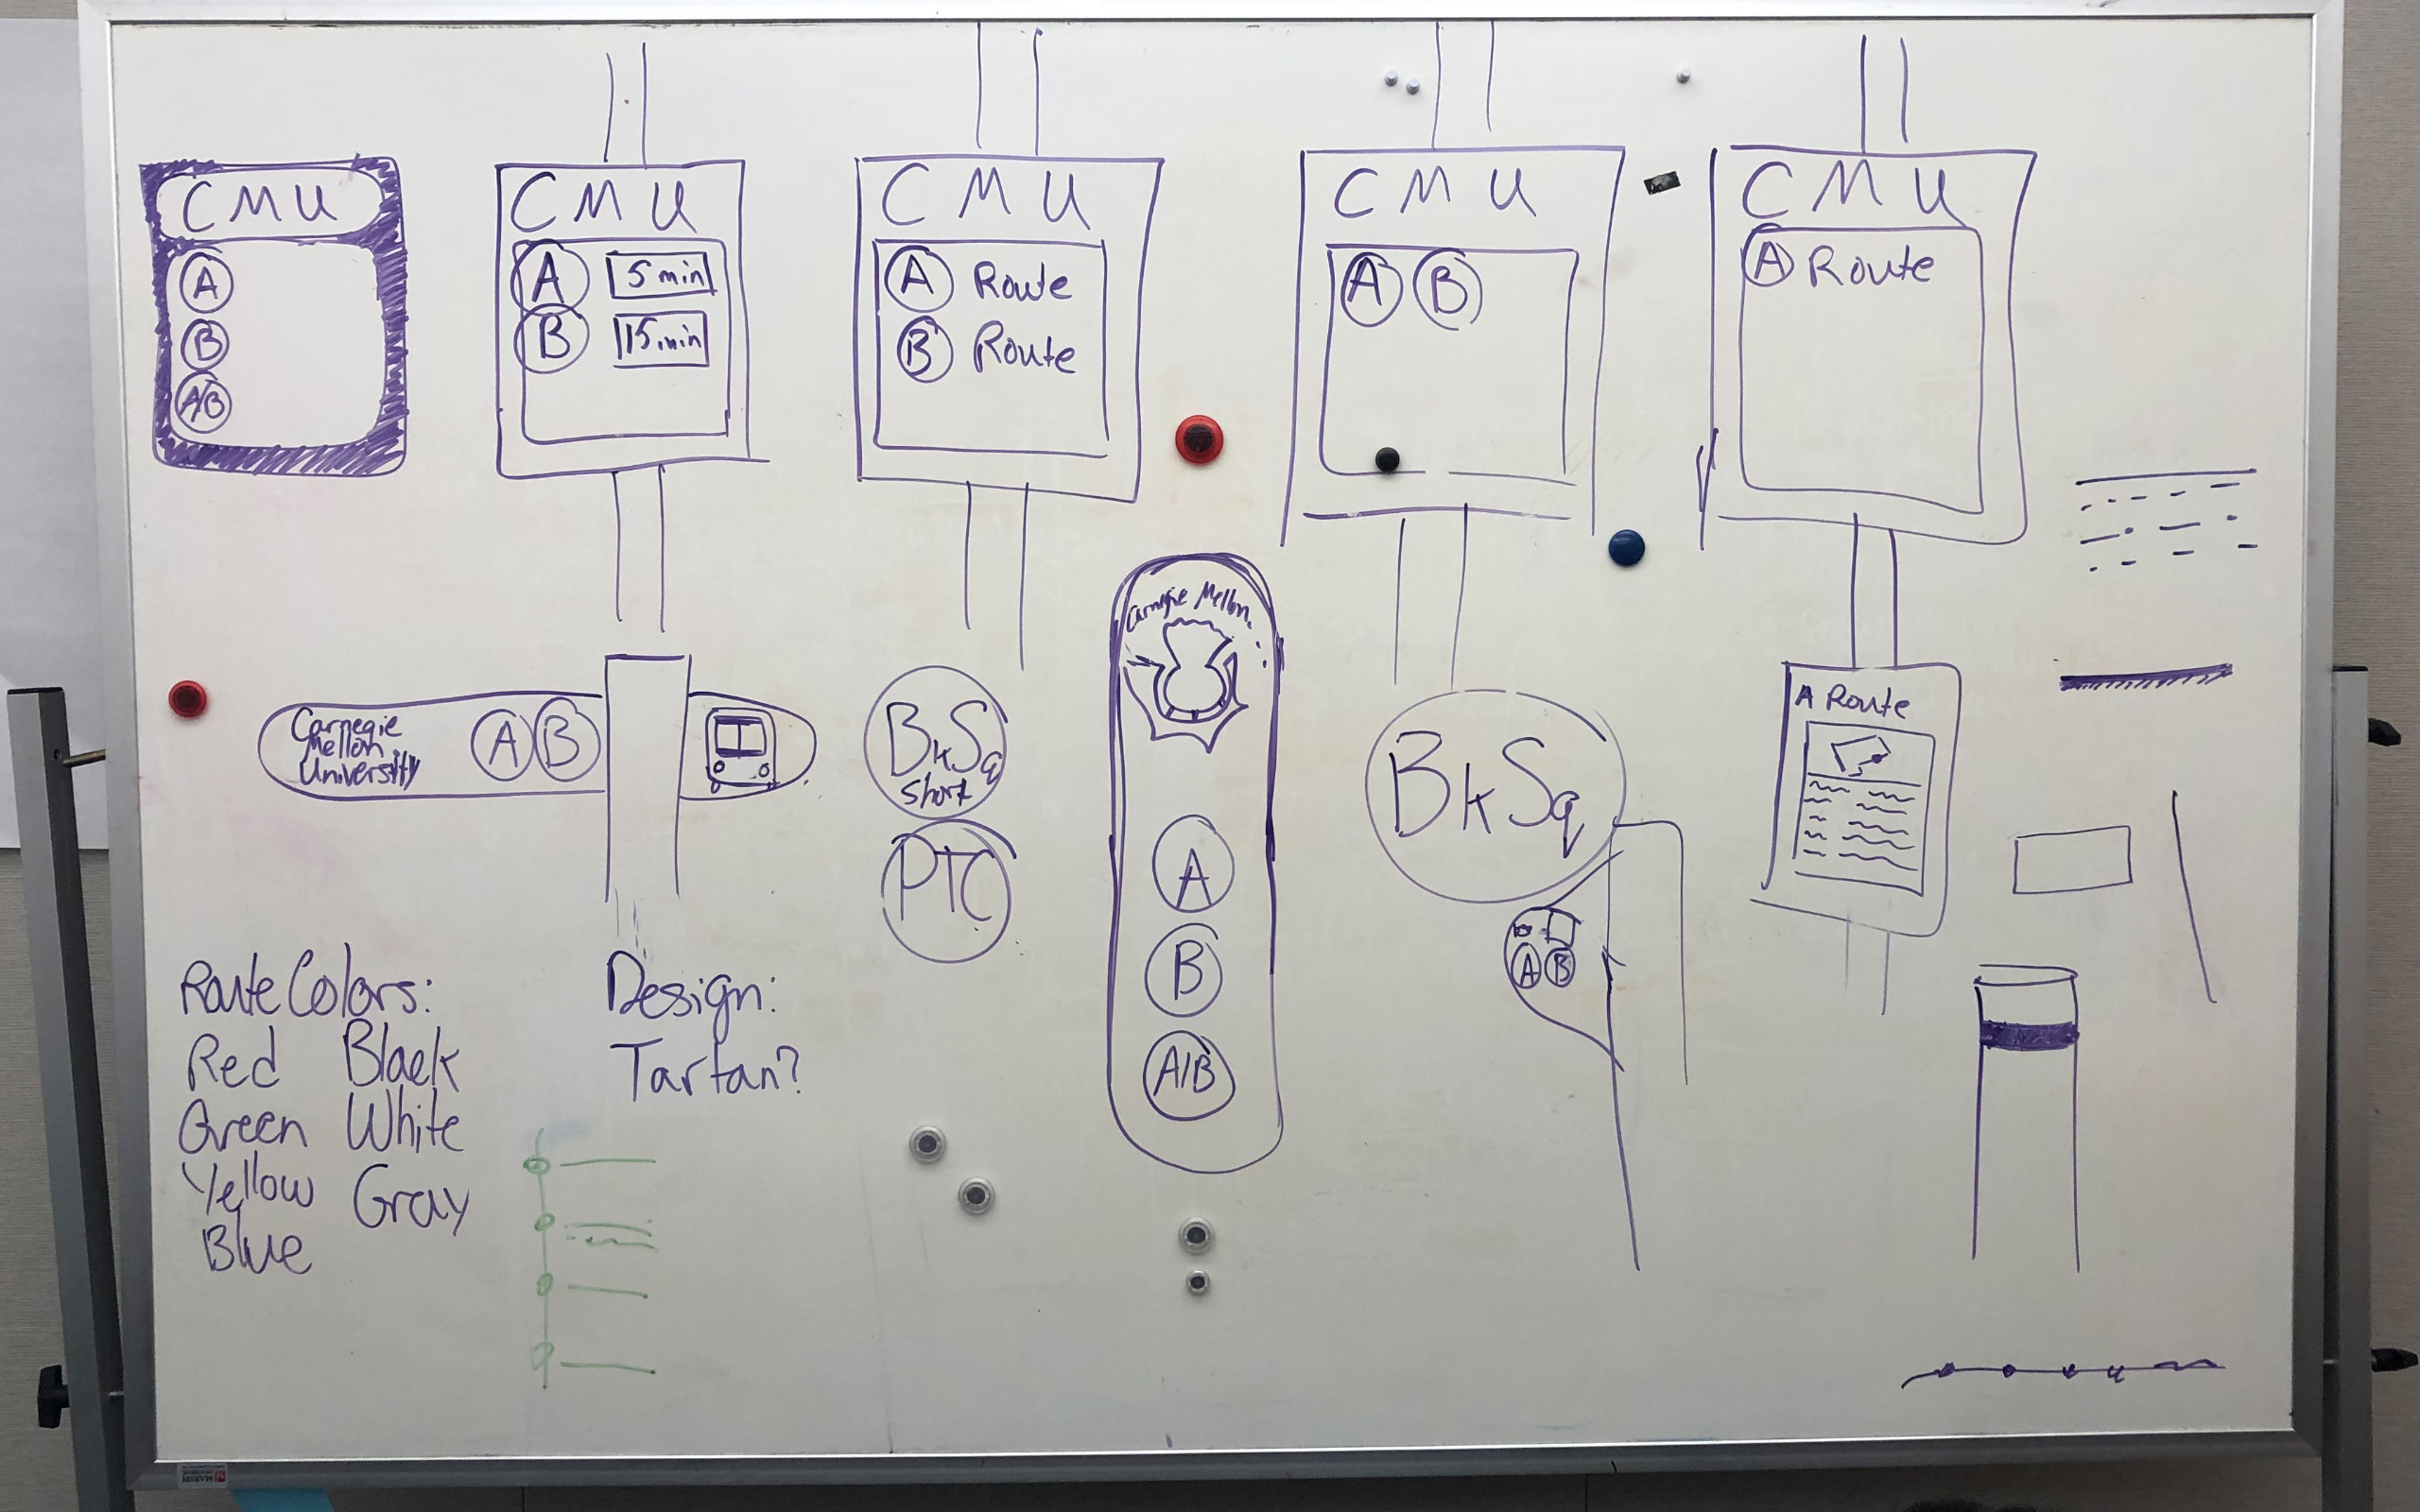 CMU
A
B
A/B
CMU
A 5 min
B 15 min
CMU
A Route
B Route
CMU
A B
CMU
A Route
Carnegie
Mellon
University
A B
BkSq
short
PTC
Carnegie Mellon
A
B
A/B
BkSq
A B
A Route
Route Colors:
Red Black
Green White
Yellow Gray
Blue
Design:
Tartan?